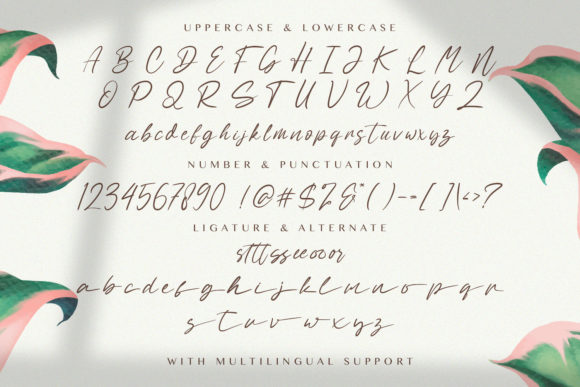 UPPERCASE & LOWERCASE
A B C D E F G H I J K L M N
O P Q R S T U V W X Y Z
abcdefghijklmnopqrstuvwxyz
NUMBER & PUNCTUATION
1234567890 !@#$%&*()-=[]\<>?
LIGATURE & ALTERNATE
stttsseeooor
abcdefghijklmnopqr
stuvwxyz
WITH MULTILINGUAL SUPPORT